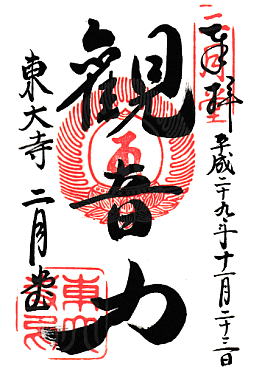 奉拝
平成二十九年十一月二十三日
二月堂
観音力
東大寺 二月堂